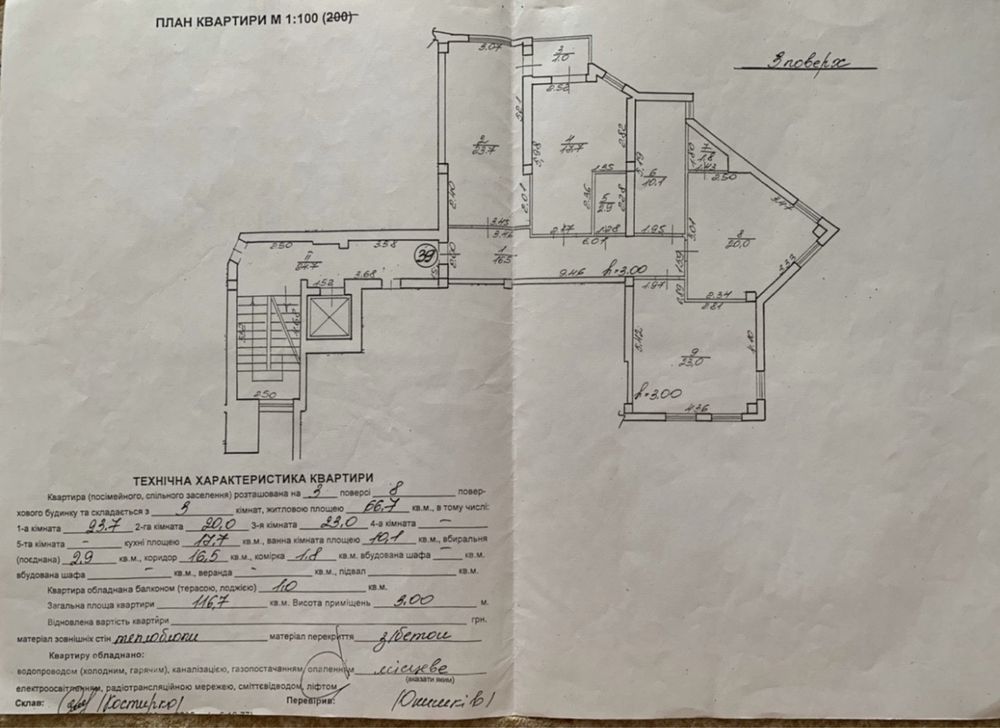 ПЛАН КВАРТИРИ М 1:100 (200)
3 поверх
3.07
3
1.0
2.52
2
23.7
4
17.7
2.82
5.98
3.19
6
10.1
1.80
7
1.8
1.43
2.50
3.47
1.35
2.36
5
2.9
2.28
2.40
2.01
3.45
3.46
2.87
1.28
6.07
1.95
3.01
8
20,0
3.33
2.50
3.58
39
1
16.5
9.46
h=3.00
II
1.52
3.68
1.91
2.34
2.81
2.50
5.42
9
23,0
4.10
h=3.00
4.36
ТЕХНІЧНА ХАРАКТЕРИСТИКА КВАРТИРИ
Квартира (посімейного, спільного заселення) розташована на 3 поверсі 8 повер-
хового будинку та складається з 3 кімнат, житловою площею 66,7 кв.м., в тому числі:
1-а кімната 23,7 2-га кімната 20,0 3-я кімната 23,0 4-а кімната –
5-та кімната – кухні площею 17,7 кв.м., ванна кімната площею 10,1 кв.м., вбиральня
(поєднана) 2,9 кв.м., коридор 16,5 кв.м., комірка 1,8 кв.м. вбудована шафа – кв.м.
вбудована шафа – кв.м., веранда – кв.м., підвал кв.м.
Квартира обладнана балконом (терасою, лоджією) 1,0 кв.м.
Загальна площа квартири 116,7 кв.м. Висота приміщень 3,00 м.
Відновлена вартість квартири грн.
матеріал зовнішніх стін теплоблоки матеріал перекриття з/бетон
Квартиру обладнано:
водопроводом (холодним, гарячим), каналізацією, газопостачанням, опаленням місцеве
(вказати яким)
електроосвітленням, радіотрансляційною мережею, сміттєвідводом, ліфтом
Склав: /Костирко/ Перевірив: